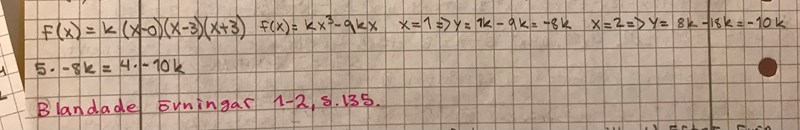 f(x) = k (x-0)(x-3)(x+3) f(x) = kx³-9kx x=1 => y = 1k - 9k = -8k x=2 => y = 8k - 18k = -10k
5 · -8k = 4 · -10k
Blandade övningar 1-2, s. 135.